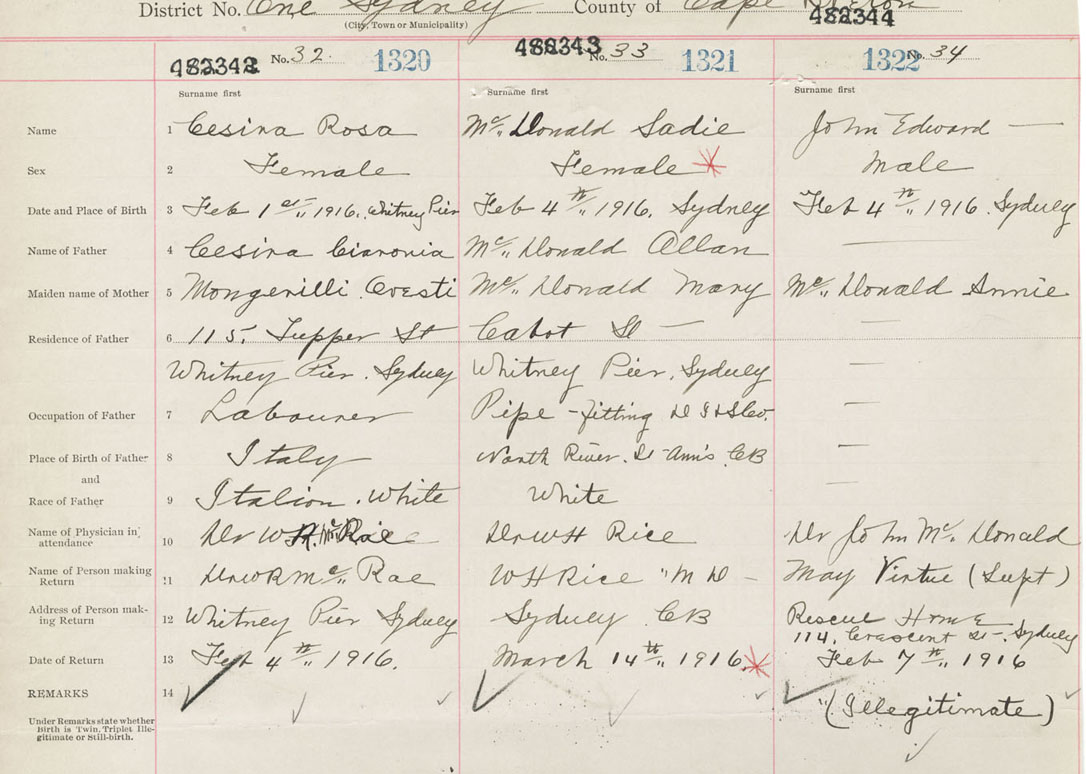 District No. One Sydney County of Cape Breton
(City, Town or Municipality)
482342 No. 32. 1320 482343 No. 33 1321 482344 1322 No. 34
Surname first Surname first Surname first
Name 1 Cesira Rosa Mc. Donald Sadie John Edward —
Sex 2 Female Female Male
Date and Place of Birth 3 Feb 1st, 1916. Whitney Pier Feb 4th, 1916. Sydney Feb 4th, 1916. Sydney
Name of Father 4 Cesira Mc. Donald Allan —
Maiden name of Mother 5 Mc. Donald Mary Mc. Donald Annie
Residence of Father 6 115. Tupper St Cabot St — —
Whitney Pier. Sydney Whitney Pier, Sydney —
Occupation of Father 7 Labourer Pipe - fitting —
Place of Birth of Father 8 Italy North River. St-Ann's CB —
and
Race of Father 9 Italian. White White —
Name of Physician in attendance 10 Dr W R. Mc Rae Dr WH Rice Dr John Mc. Donald
Name of Person making Return 11 Dr W R Mc. Rae WH Rice "M D - May Virtue (Supt)
Address of Person making Return 12 Whitney Pier Sydney Sydney CB Rescue Home
114, Crescent St-, Sydney
Date of Return 13 Feb 4th, 1916. March 14th, 1916. Feb 7th, 1916
REMARKS 14 "(Illegitimate)
Under Remarks state whether
Birth is Twin, Triplet, Ille-
gitimate or Still-birth.